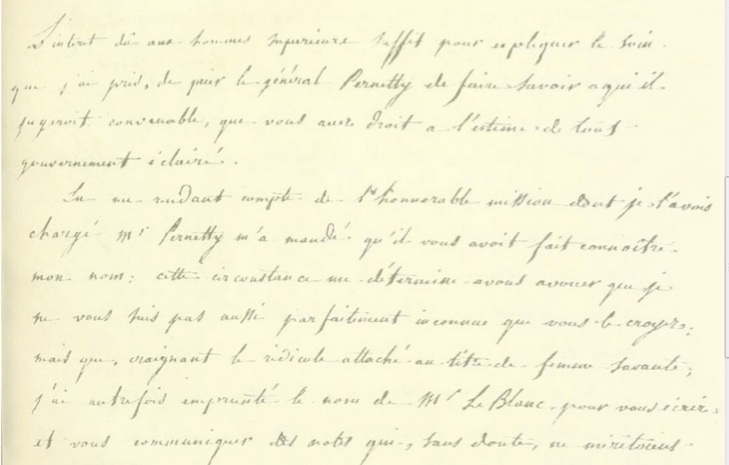 L'intérêt dû aux hommes supérieurs suffit pour expliquer le soin
que j'ai pris, de prier le général Pernetty de faire savoir a qui il
jugeroit convenable, que vous avez droit a l'estime de tout
gouvernement éclairé.
En me rendant compte de l'honnorable mission dont je l'avois
chargé Mr Pernetty m'a mandé qu'il vous avoit fait connoître
mon nom: cette circonstance me détermine a vous avouer que je
ne vous suis pas aussi parfaitement inconnue que vous le croyez;
mais que, craignant le ridicule attaché au titre de femme savante,
j'ai autrefois emprunté le nom de Mr Le Blanc pour vous écrire
et vous communiquer des notes qui, sans doute, ne méritoient